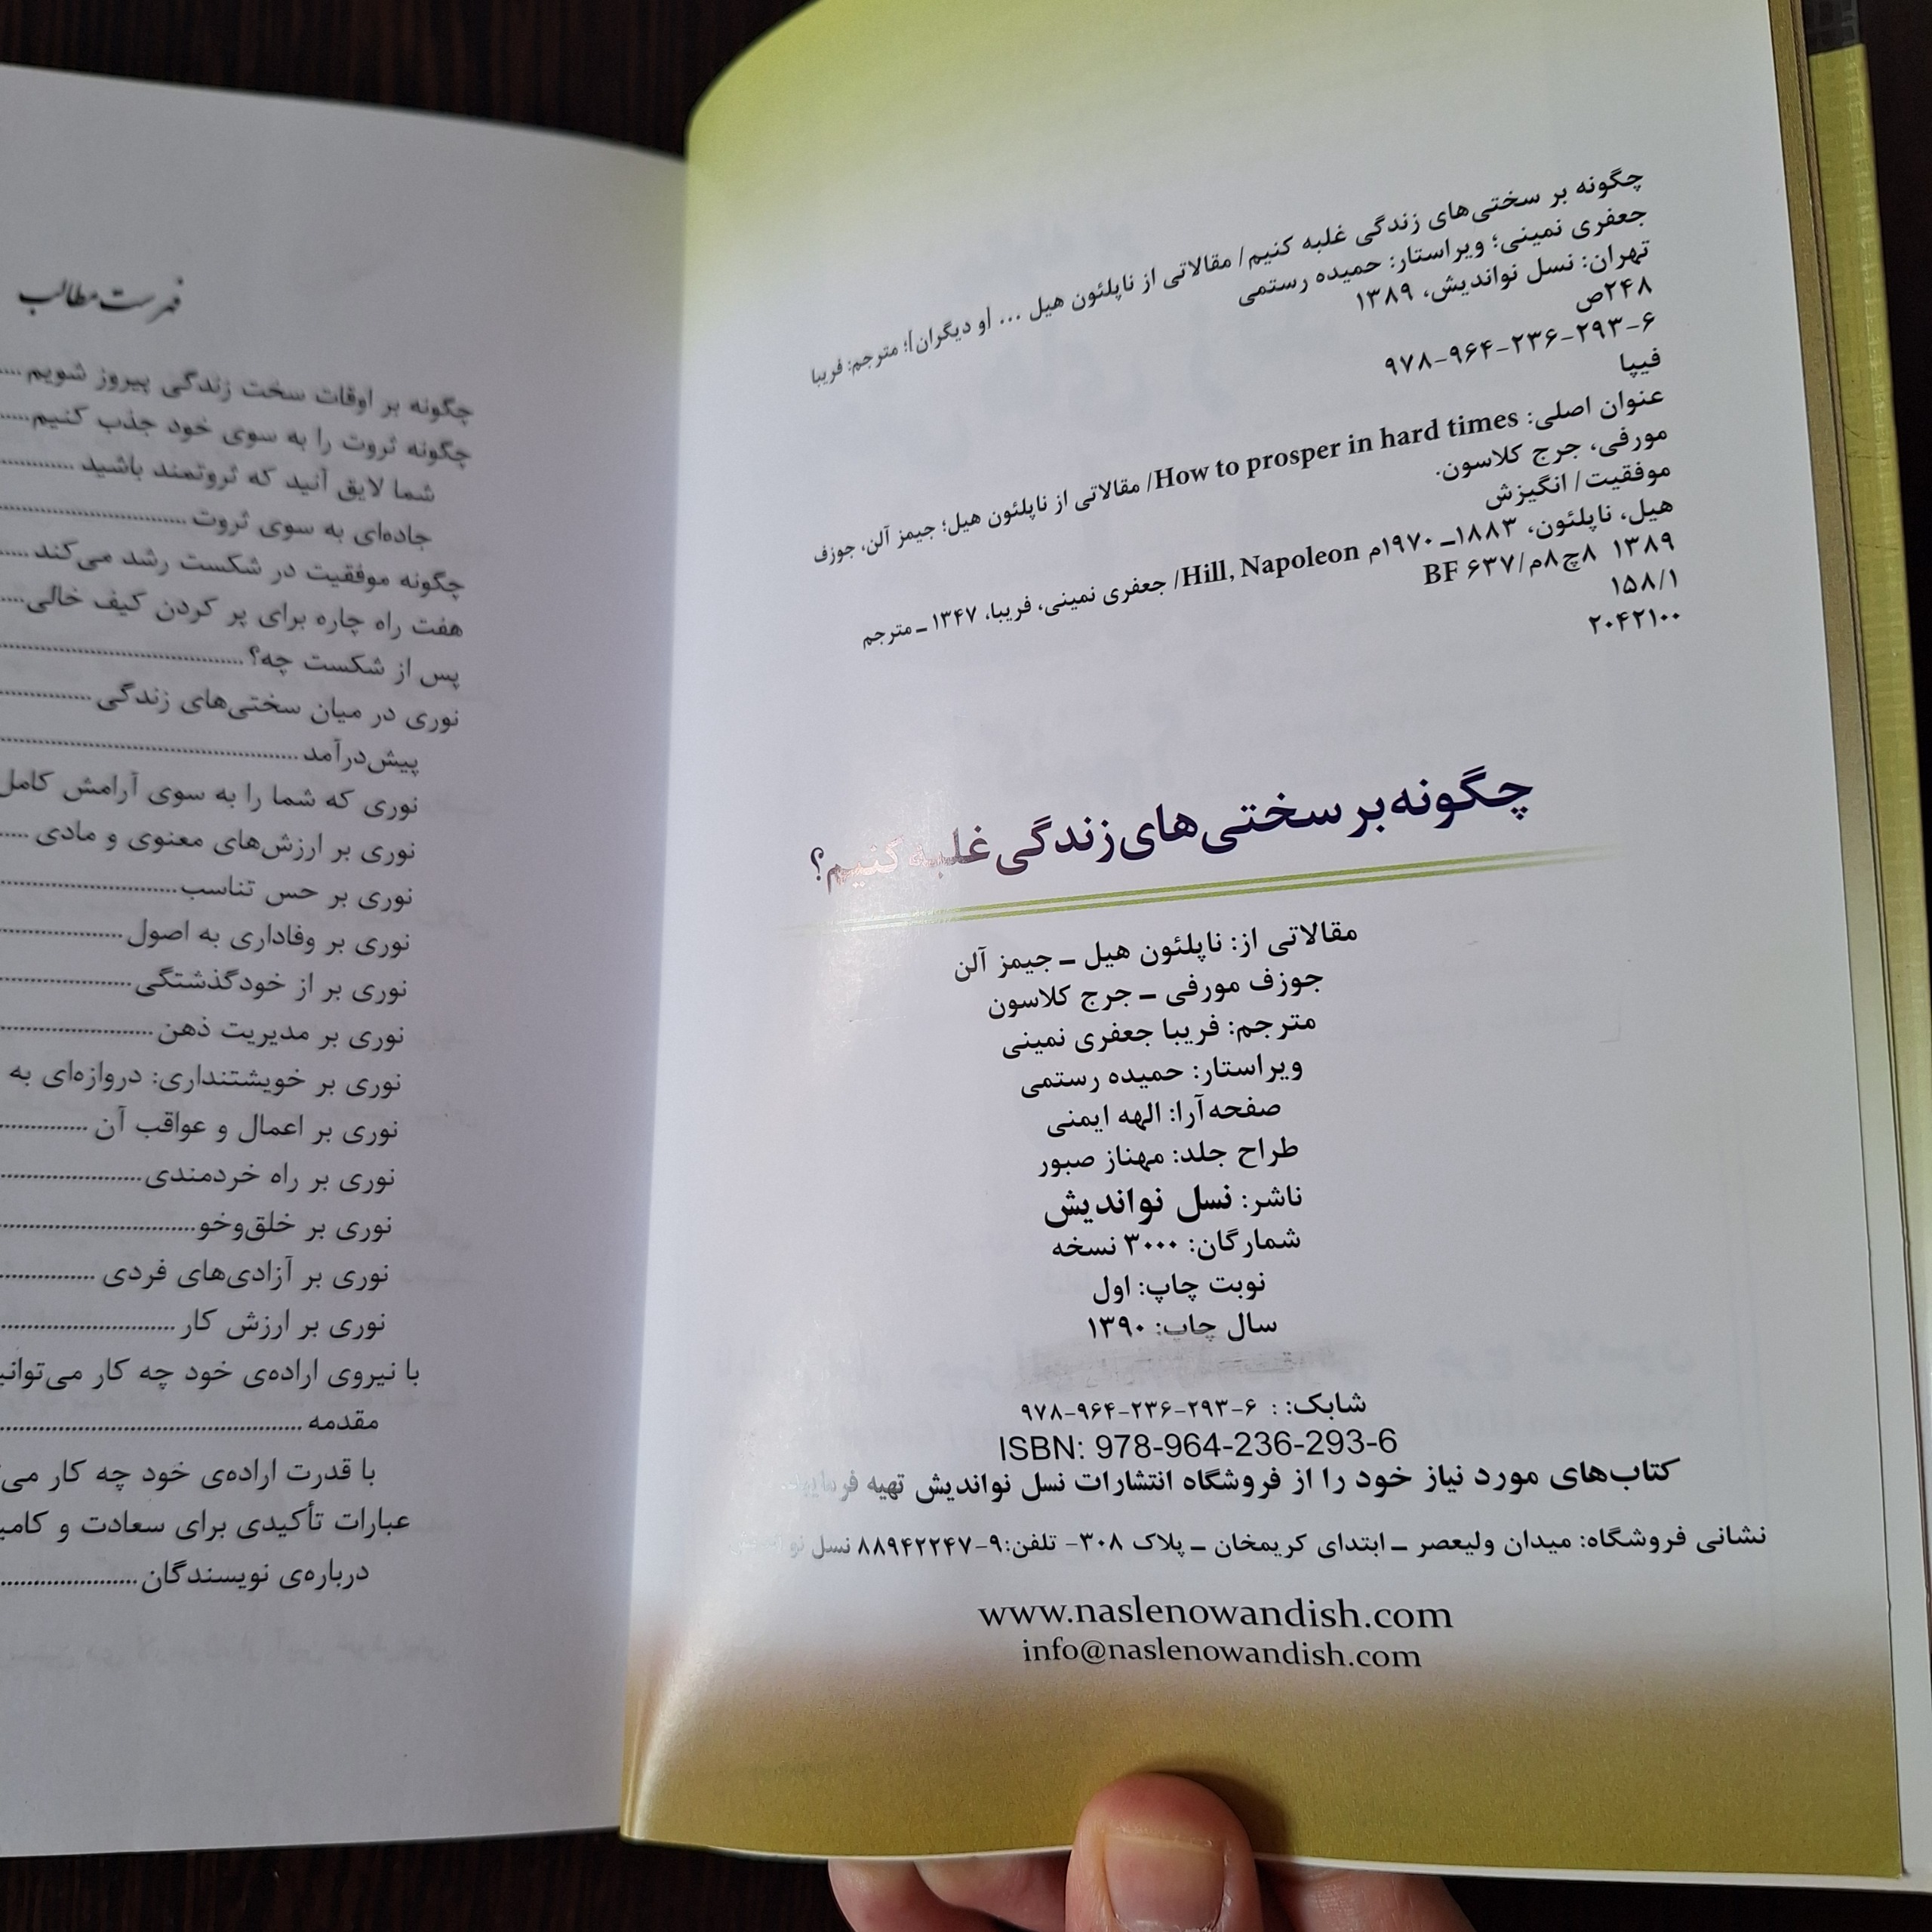 چگونه بر سختی‌های زندگی غلبه کنیم/ مقالاتی از ناپلئون هیل ... [و دیگران]؛ مترجم: فریبا
جعفری نمینی؛ ویراستار: حمیده رستمی
تهران: نسل نواندیش، ۱۳۸۹
۲۴۸ص
۹۷۸-۹۶۴-۲۳۶-۲۹۳-۶
فیپا
عنوان اصلی: How to prosper in hard times/ مقالاتی از ناپلئون هیل؛ جیمز آلن، جوزف
مورفی، جرج کلاسون.
موفقیت/ انگیزش
هیل، ناپلئون، ۱۸۸۳ـ ۱۹۷۰م Hill, Napoleon/ جعفری نمینی، فریبا، ۱۳۴۷ ـ مترجم
۱۳۸۹ ۸چ۸م/۶۳۷ BF
۱۵۸/۱
۲۰۴۲۱۰۰
چگونه بر سختی‌های زندگی غلبه کنیم؟
مقالاتی از: ناپلئون هیل ـ جیمز آلن
جوزف مورفی ـ جرج کلاسون
مترجم: فریبا جعفری نمینی
ویراستار: حمیده رستمی
صفحه‌آرا: الهه ایمنی
طراح جلد: مهناز صبور
ناشر: نسل نواندیش
شمارگان: ۳۰۰۰ نسخه
نوبت چاپ: اول
سال چاپ: ۱۳۹۰
شابک: : ۹۷۸-۹۶۴-۲۳۶-۲۹۳-۶
ISBN: 978-964-236-293-6
کتاب‌های مورد نیاز خود را از فروشگاه انتشارات نسل نواندیش تهیه فرمایید.
نشانی فروشگاه: میدان ولیعصر ـ ابتدای کریمخان ـ پلاک ۳۰۸- تلفن:۹-۸۸۹۴۲۲۴۷ نسل
www.naslenowandish.com
info@naslenowandish.com
فهرست مطالب
چگونه بر اوقات سخت زندگی پیروز شویم ....
چگونه ثروت را به سوی خود جذب کنیم.....
شما لایق آنید که ثروتمند باشید ............
جاده‌ای به سوی ثروت ..............................
چگونه موفقیت در شکست رشد می‌کند .....
هفت راه چاره برای پر کردن کیف خالی....
پس از شکست چه؟........................................
نوری در میان سختی‌های زندگی ...............
پیش‌درآمد .................................................
نوری که شما را به سوی آرامش کامل
نوری بر ارزش‌های معنوی و مادی .....
نوری بر حس تناسب..............................
نوری بر وفاداری به اصول ....................
نوری بر از خودگذشتگی ......................
نوری بر مدیریت ذهن ..........................
نوری بر خویشتنداری: دروازه‌ای به
نوری بر اعمال و عواقب آن ...............
نوری بر راه خردمندی ........................
نوری بر خلق‌وخو.................................
نوری بر آزادی‌های فردی ................
نوری بر ارزش کار ..............................
با نیروی اراده‌ی خود چه کار
مقدمه ..................................................
با قدرت اراده‌ی خود چه کار
عبارات تأکیدی برای سعادت و
درباره‌ی نویسندگان .......................